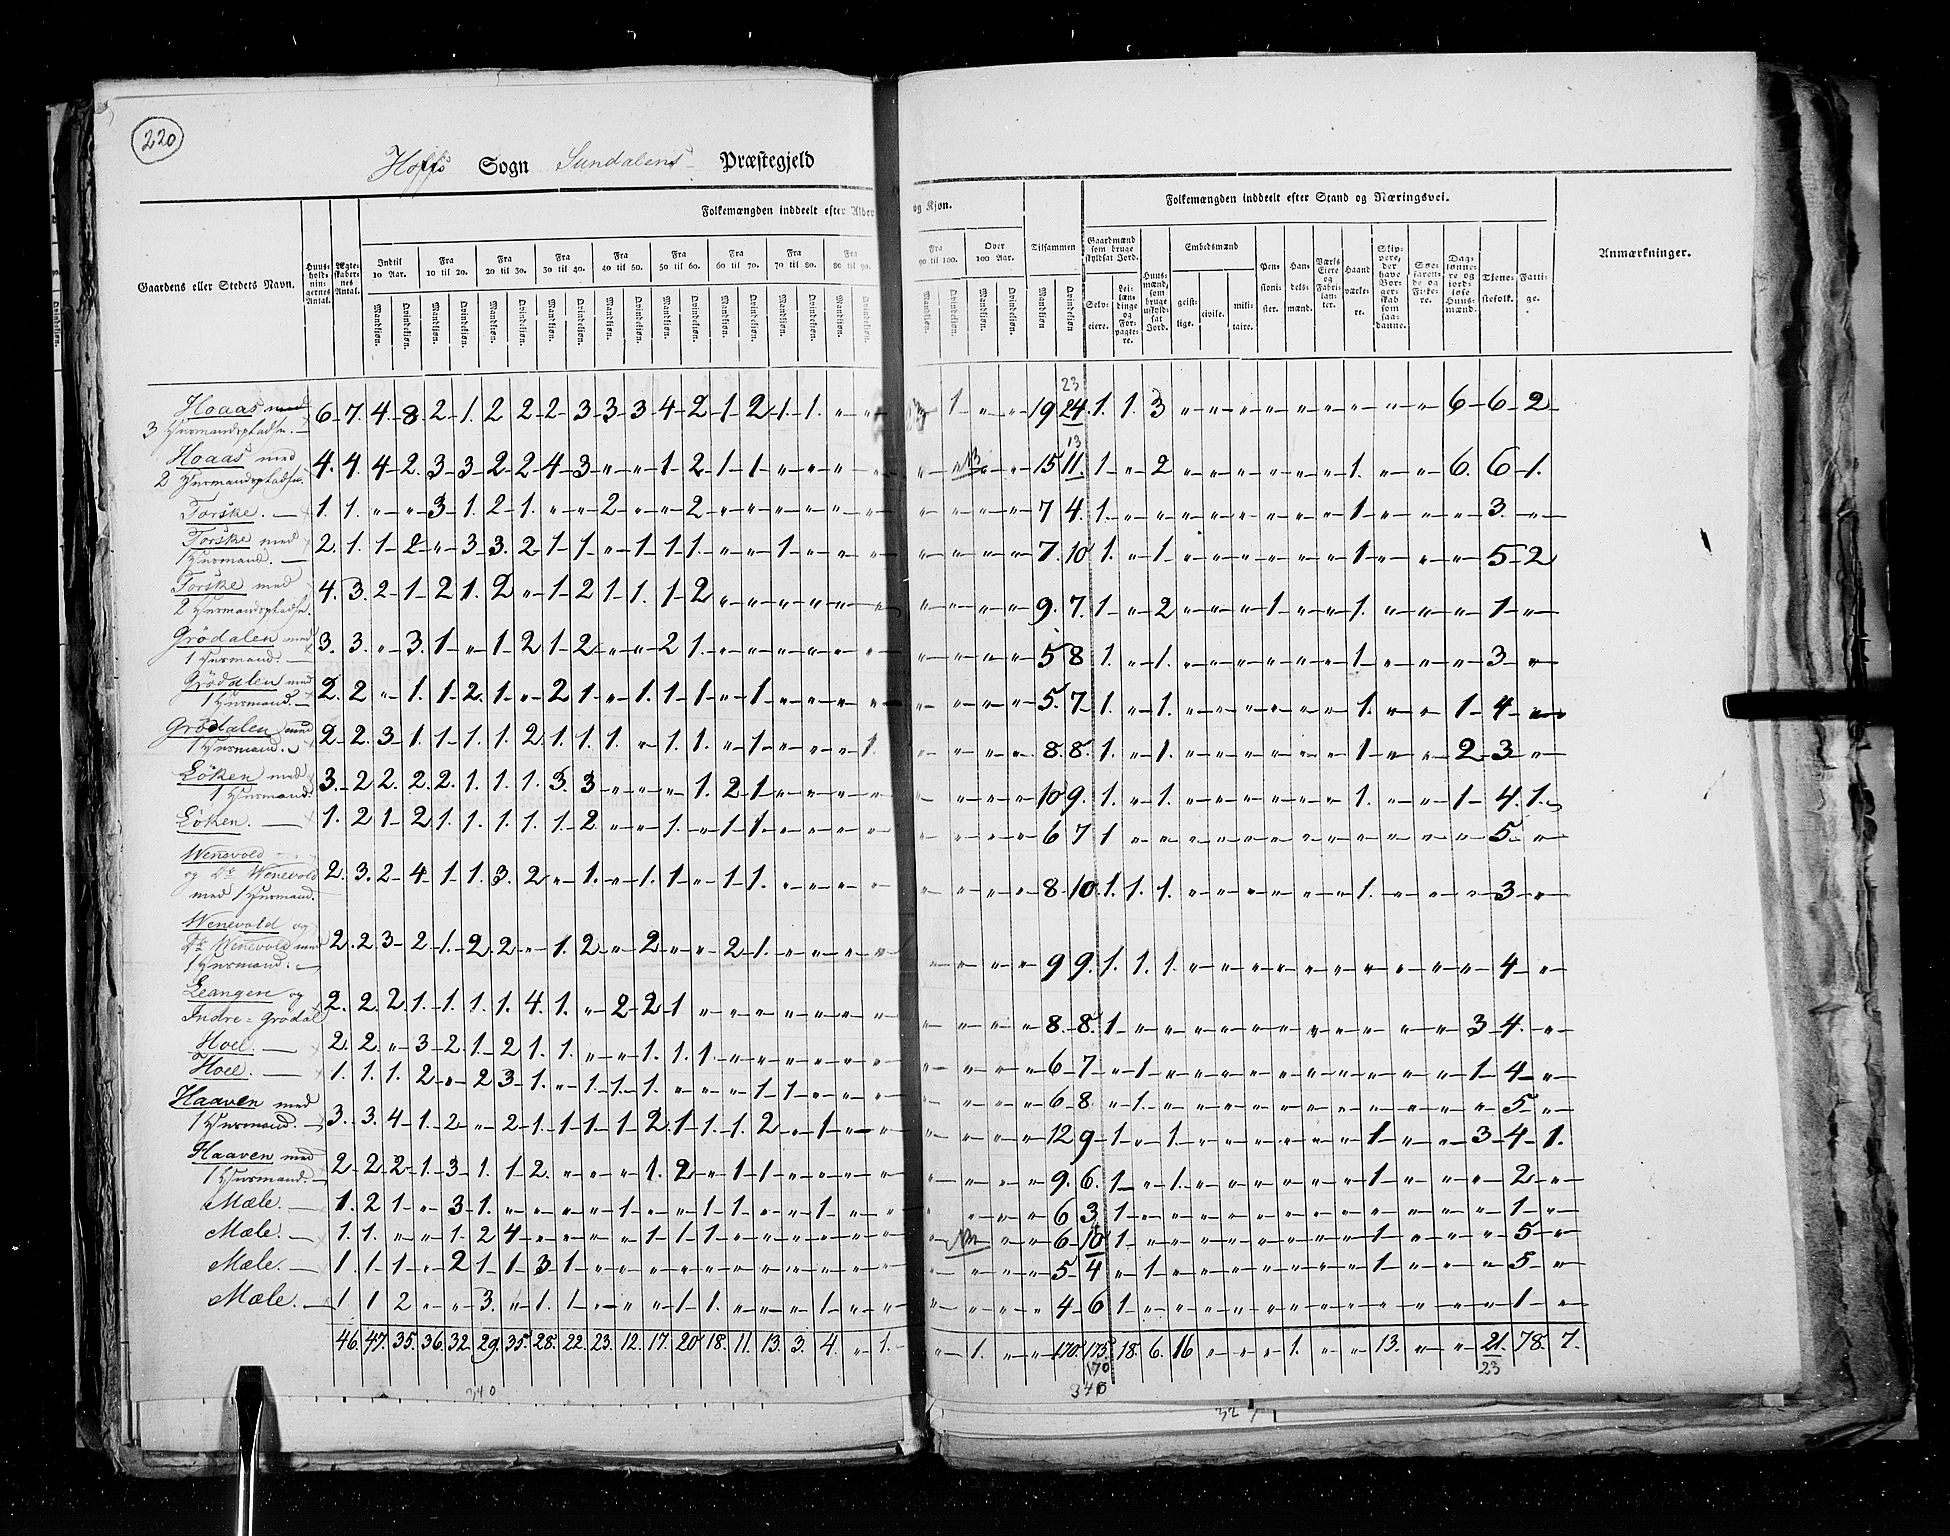 220
Hoffs Sogn Sundalens Præstegjeld
Folkemængden inddeelt efter Alder og Kjøn.
Folkemængden inddeelt efter Stand og Næringsvei.
Gaardens eller Stedets Navn.
Huus-holdnin-gernes Antal.
Ægte-skaber-nes Antal.
Indtil 10 Aar.
Fra 10 til 20.
Fra 20 til 30.
Fra 30 til 40.
Fra 40 til 50.
Fra 50 til 60.
Fra 60 til 70.
Fra 70 til 80.
Fra 80 til 90.
Fra 90 til 100.
Over 100 Aar.
Tilsammen
Mandkjøn. Qvindekjøn.
Gaardmænd som bruge skyldsat Jord.
Selv-eiere.
Lei-lændinge og For-pagte-re.
Huus-mænd, som bruge uskyld-sat Jord.
Embedsmænd
geist-lige. civile. mili-taire.
Pen-sioni-ster.
Han-dels-mænd.
Værks Eiere og Fabri-kan-ter.
Haand værke-re.
Skip-pere, der have Bor-ger-skab som saa-danne.
Søe-faren-de og Fiske-re.
Dag-lønne-re og jord-løse Huus-mænd.
Tiene-stefolk.
Fatti-ge.
Anmærkninger.
23
Hoaas med 6 7. 4 8 2 1. 2 2 2 3 3 3 4 2 1 2 1 1. " " 1 " " 19 24. 1. 1. 3 " " " " " " " " " 6 6 2
3 Huusmandspladse.
13
Hoaas med 4. 4. 4 2. 3 3 2 2 4 3 " " 1 2 1 1. " " " " 15 11. 1 " 2 " " " " " " 1. " " 6. 6 1.
2 Huusmandspladse.
Forske. 1. 1. " " 3 1. 2 1. " " 2 " " 2 " " " " " " 7 4. 1. " " " " " " " " 1 " " " 3. "
Forske med 2. 1. 1 2 " 3 3. 2 1 1 " 1 1 1. " " 1 " " " 7. 10 1. " 1 " " " " " " 1 " " " 5 2
1 Huusmand.
Forske med 4. 3. 2 1 2 1. 2 " 1 2 1 1. 1 2 " " " " " " 9. 7. 1 " 2 " " " 1 " " 1. " " " 1 "
2 Huusmandspladse.
Grödalen med 3. 3. " 3. 1 " 1 2 1 2 " " 2 1. " " " " " " 5 8 1. " 1. " " " " " " 1 " " " 3 "
1 Huusmand.
Grödalen med 2. 2 " 1. 1. 2. 1. " 2 1 " 1. 1 1 " 1 " " " " 5. 7. 1. " 1. " " " " " " 1. " " 1 4 "
1 Huusmand.
Grödalen med 2. 2. 3 1. 1. 1. 1. 2. 1. 1. 1 " 1. 1. " 1 " " " 1. 8. 8. 1. " 1. " " " " " " 1 " " 2 3 "
1 Huusmand.
Löken med 3. 2 2. 2. 2. 1. 1. 1. 3. 3 " " " 1. 2 1 " " " " 10 9. 1. " 1. " " " " " " 1. " " 1 4. 1.
1 Huusmand.
Löken. 1. 2 1 2 1. 1. 1. 1. 1. 2 " " 1. " 1 1. " " " " 6 7 1 " " " " " " " " " " " " 5. "
Wenevold
og Do Wenevold 2. 3. 2 4. 1. 1. 3. 2 " 1. " 1. 1 " 1 1. " " " " 8 10 1. 1. 1. " " " " " " 1. " " " 3 "
med 1 Huusmand.
Wenevold og
Do Wenevold med 2. 2 3 2 1. 2 2 " 1. 2 " 2 " " 2 1. " " " " 9 9. 1. 1. 1. " " " " " " " " " " 4 "
1 Huusmand.
Leangen og 2. 2. 2. 1. 1. 1. 1. 4. 1. " 2 2 1 " " " " " " " 8. 8. 1 " " " " " " " " " " " 3 4. "
Indre=Grödal
Hoel. 2. 2. " 3 2. 1. 2 1. 1. " " 1. 1. 1. " " " " " " 6 7 " 1 " " " " " " " " " " 1 4 "
Hoel. 1. 1. 1. 2 " 2 3. 1. " 1. 1. 1. " " " 1 1. " " " 6 8. " 1. " " " " " " " " " " " 5. "
Haaven med 3. 3. 4 1. 2 " 2 1. 1 1 1 2 1 1. 1. 2 " 1 " " 12 9 1 " 1 " " " " " " 1 " " 3 4 1.
1 Huusmand.
Haaven med 2 2 2 1. 3. 1. 1 2. " " " 1. 2 " 1 1 " " " " 9. 6. 1 " 1. " " " " " " 1 " " " 2 "
1 Huusmand.
Mæle. 1. 2 1 " 3 1. " " " " 1 " " 1 1 " " 1 " " 6 3 1 " " " " " " " " " " " " 1 "
Mæle. 1. 1. " " 1. 2 4 " " " " 1 1 1 " " " " " " 6 10 1 " " " " " " " " 1 " " " 5 "
Mæle. 1. 1 1 " 2 1. 1 3 1 " " " " " " " " " " " 5 4 " 1 " " " " " " " 1 " " " 5 "
Mæle. 1 1 2 " " 3. " 1. 1 " " " 1 1. " " " 1 " " 4 6 1 " " " " " " " " " " " " 1 "
46. 47. 35. 36. 32. 29. 35. 28. 22. 23. 12. 17. 20 18. 11. 13. 3. 4. " 1. " 1. " " 170. 175. 18. 6. 16 " " " " 1. " 13. " " 21. 78. 7.
170
23
340
340
327